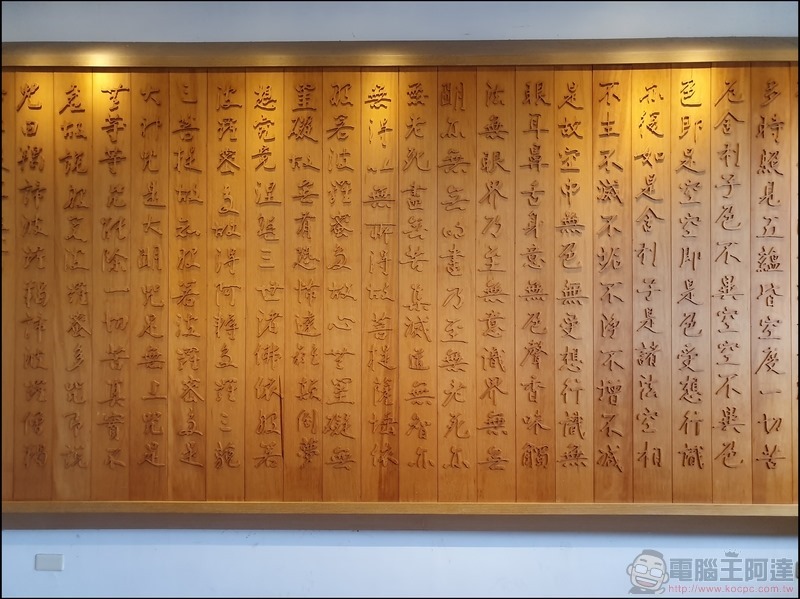 多時照見五蘊皆空度一切苦
厄舍利子色不異空空不異色
色即是空空即是色受想行識
亦復如是舍利子是諸法空相
不生不滅不垢不淨不增不減
是故空中無色無受想行識無
眼耳鼻舌身意無色聲香味觸
法無眼界乃至無意識界無無
明亦無無明盡乃至無老死亦
無老死盡無苦集滅道無智亦
無得以無所得故菩提薩埵依
般若波羅蜜多故心無罣礙無
罣礙故無有恐怖遠離顛倒夢
想究竟涅槃三世諸佛依般若
波羅蜜多故得阿耨多羅三藐
三菩提故知般若波羅蜜多是
大神咒是大明咒是無上咒是
無等等咒能除一切苦真實不
虛故說般若波羅蜜多咒即說
咒曰羯諦波羅羯諦波羅僧羯
電腦王阿達
http://www.kocpc.com.tw